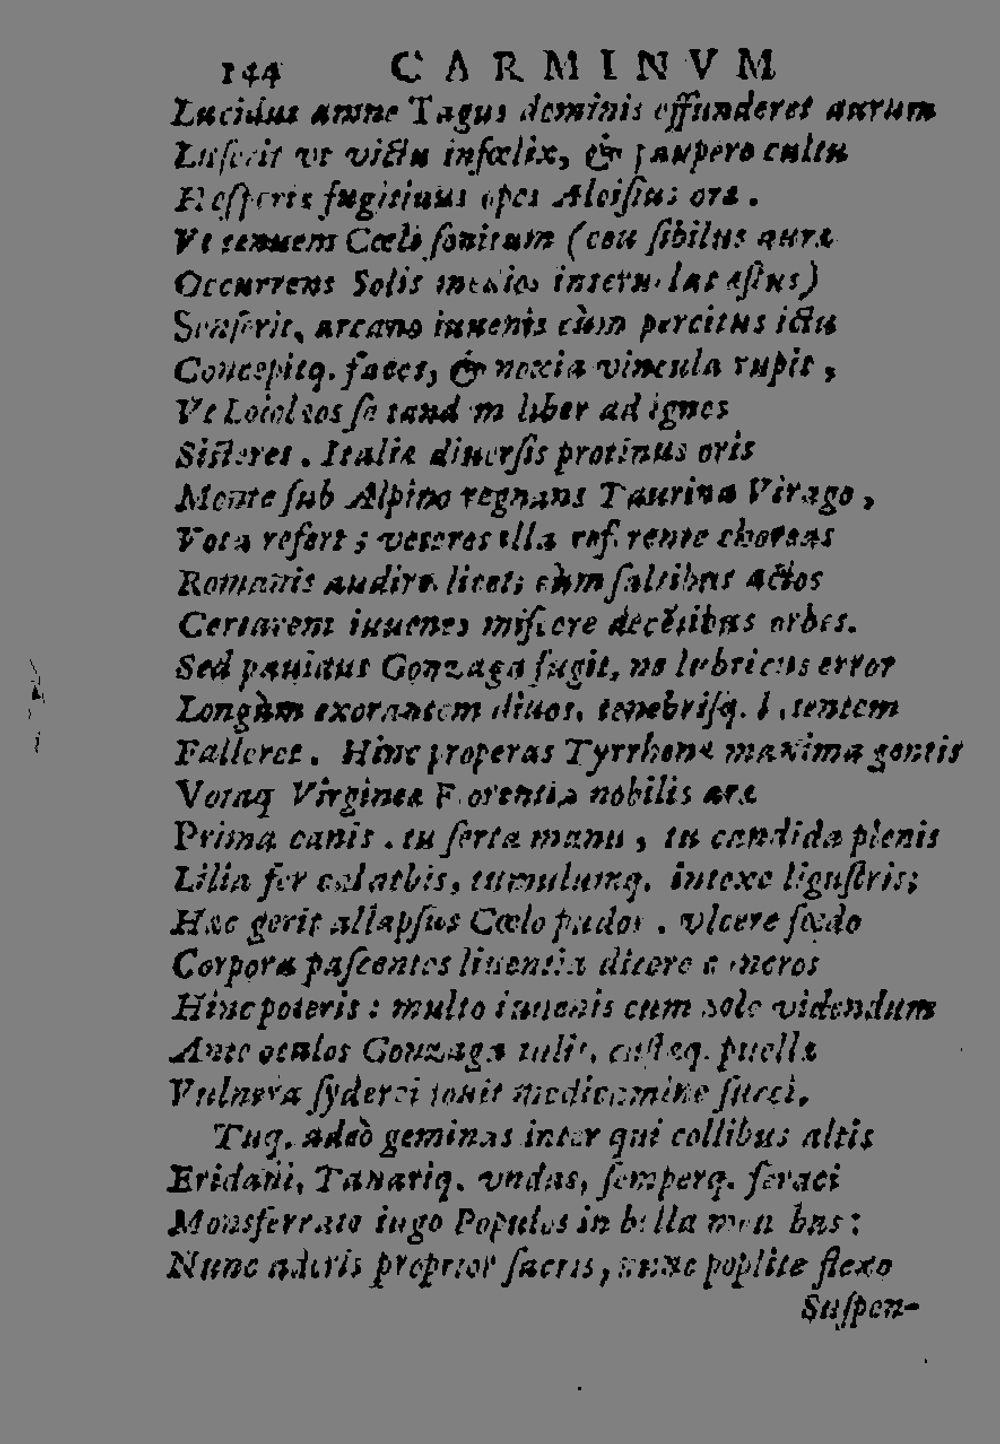 144 CARMINVM
Lucidus amne Tagus dominis effunderet aurum
Luserit vt victu infœlix, & paupere cultu
Hesperiæ fugitiuus opes Aloisius oræ.
Vt tenuem Cœli sonitum (ceu sibilus auræ
Occurrens Solis medios interuolat æstus)
Senserit, arcano iuuenis cùm percitus ictu
Concepitq. faces, & noxia vincula rupit,
Vt Loioleos se tandem liber ad ignes
Sisteret. Italiæ diuersis protinus oris
Monte sub Alpino regnans Taurina Virago,
Vota refert; veteres illa referente choreas
Romanis audire licet; cùm saltibus actos
Certarent iuuenes miscere decētibus orbes.
Sed pauidus Gonzaga fugit, ne lubricus error
Longùm exorantem diuos, tenebrisq. latentem
Falleret. Hinc properas Tyrrhenæ maxima gentis
Votaq Virgineæ Florentia nobilis aræ
Prima canis. tu serta manu, tu candida plenis
Lilia fer calathis, tumulumq. intexe ligustris;
Hæc gerit allapsus Cœlo pudor. vlcere fœdo
Corpora pascentes liuentia dicere cancros
Hinc poteris: multo iuuenis cum sole videndum
Ante oculos Gonzaga tulit, castæq. puellæ
Vulnera syderei iouit medicamine succi.
Tuq. adeò geminas inter qui collibus altis
Eridani, Tanariq. vndas, semperq. feraci
Monsferrato iugo Populos in bella
Nunc aderis proprior sacris, nunc poplite flexo
Suspen-